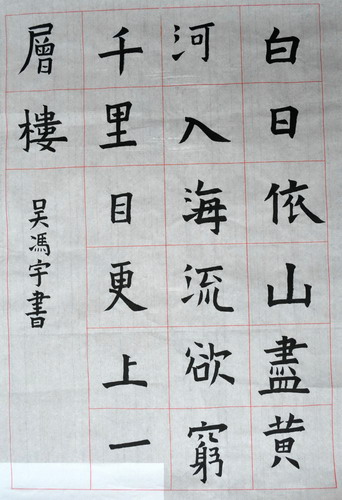 白日依山盡黄
河入海流欲窮
千里目更上一
層樓
吴馮宇書